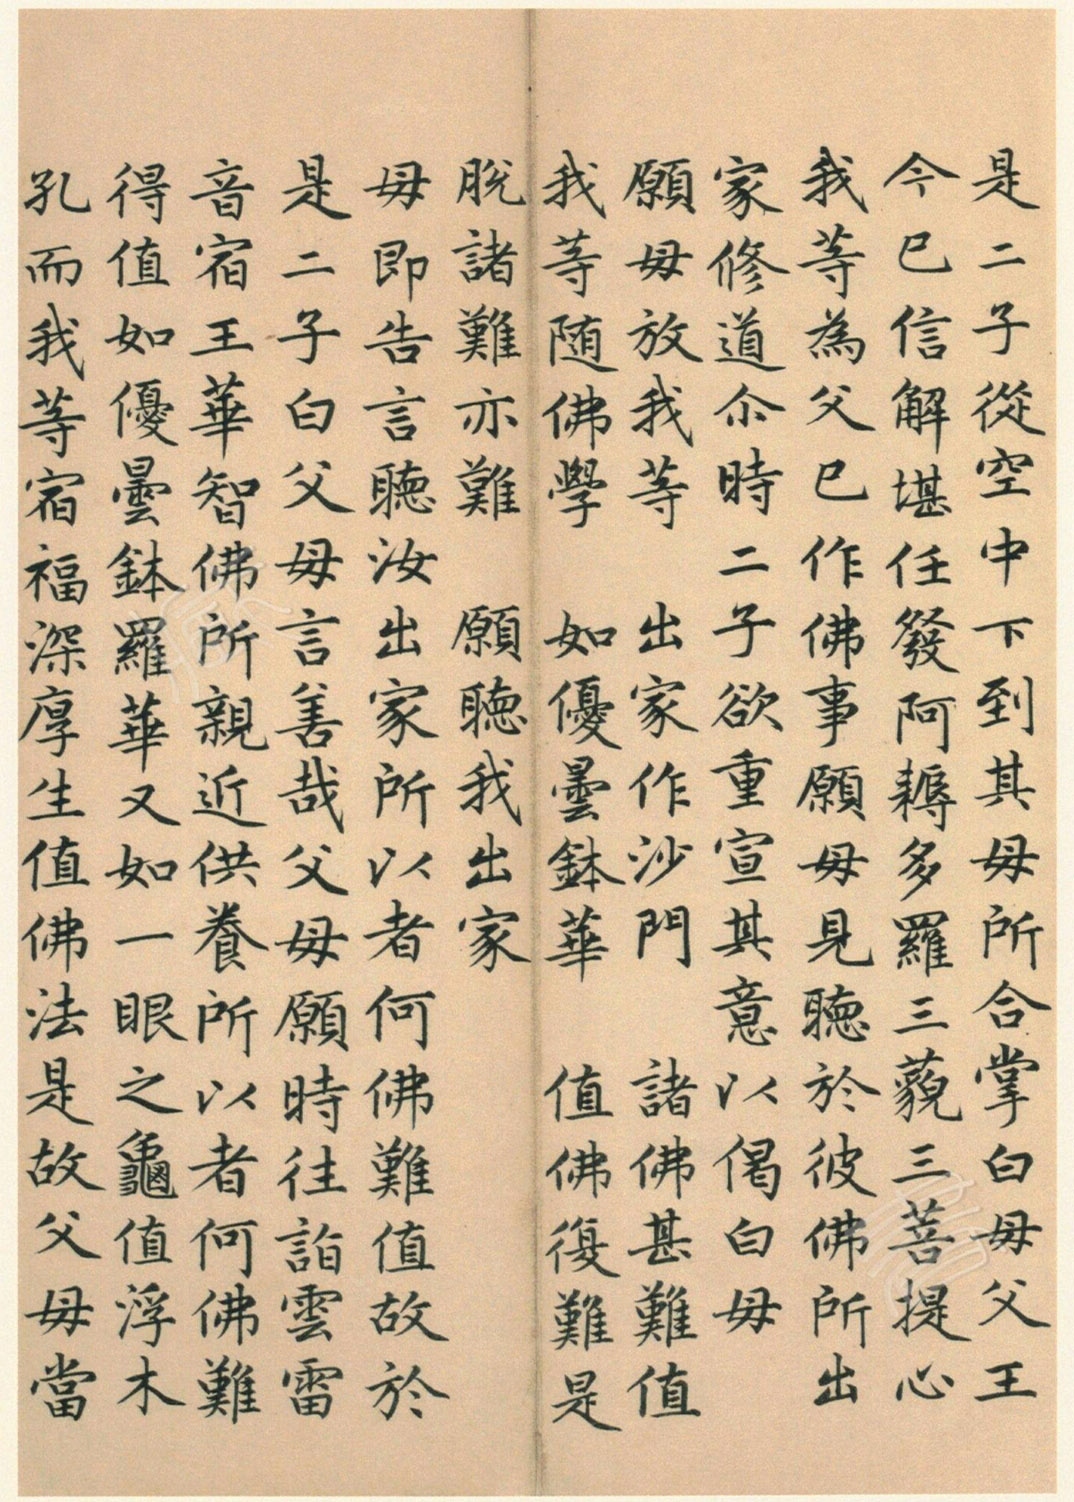 是二子從空中下到其母所合掌白母父王
今已信解堪任發阿耨多羅三藐三菩提心
我等為父已作佛事願母見聽於彼佛所出
家修道尒時二子欲重宣其意以偈白母
願母放我等　出家作沙門　諸佛甚難值
我等随佛學　如優曇鉢華　值佛復難是
脫諸難亦難　願聽我出家
母即告言聽汝出家所以者何佛難值故於
是二子白父母言善哉父母願時往詣雲雷
音宿王華智佛所親近供養所以者何佛難
得值如優曇鉢羅華又如一眼之龜值浮木
孔而我等宿福深厚生值佛法是故父母當